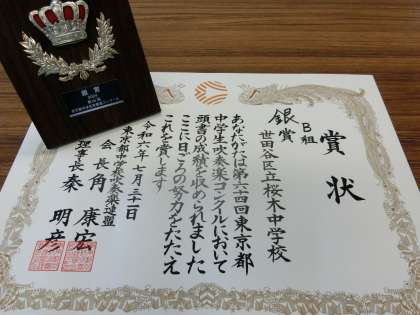 賞状
B組
銀賞
世田谷区立桜木中学校
あなたがたは第六四回東京都
中学生吹奏楽コンクールにおいて
頭書の成績を収められました
ここに日ごろの努力をたたえ
これを賞します
令和六年七月三十一日
東京都中学校吹奏楽連盟
会長角康宏
理事長秦明彦
銀賞